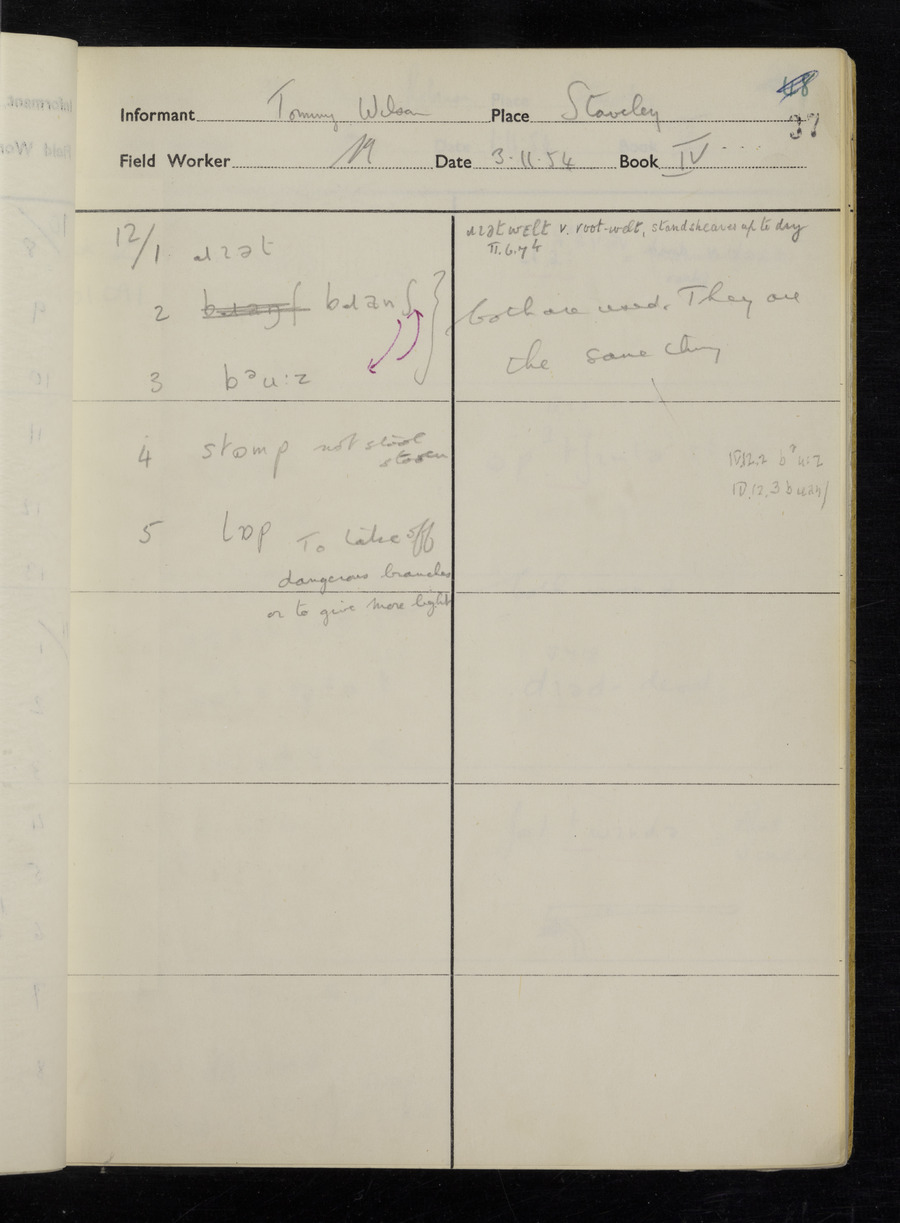 48
37
Informant Tommy Wilson Place Staveley
Field Worker M Date 3.11.54 Book IV
12/1. ɹɪət
ɹɪətwɛlt v. root-welt, stand sheaves up to dry
II.6.7
2 bɹanʃ bɹanʃ
3 bᵊu:z
both are used. They are
the same thing
4 stomp not stool
stoven
IV.12.2 bᵊu:z
IV.12.3 bɹanʃ
5 lɒp To take off
dangerous branches
or to give more light